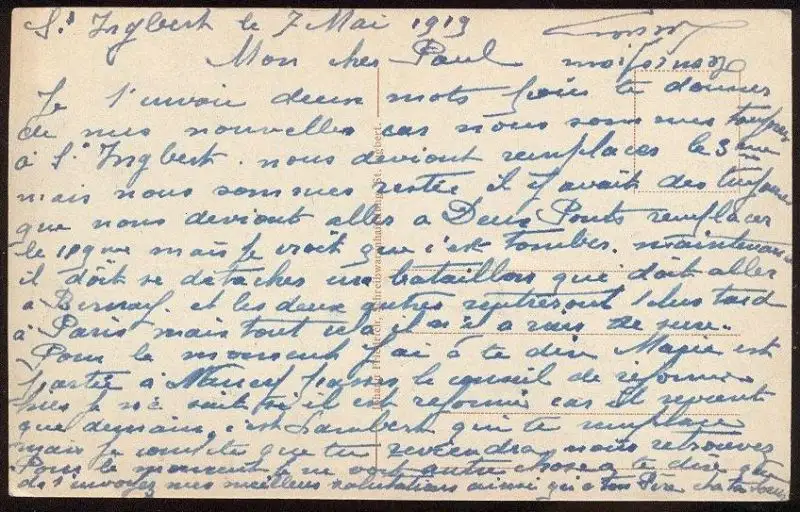 St Ingbert le 7 Mai 1919
Mon cher Paul
Je t'envoie deux mots pour te donner
de mes nouvelles car nous sommes toujours
à St Ingbert. nous deviont remplacer le 3eme
mais nous sommes restée il y avait des
que nous deviont aller a Deux Ponts remplacer
le mais je croit que c'est tomber. maintenant
il doit se detacher un bataillon qui doit aller
a Bernay. et les deux autres rentreront plus tard
à Paris mais tout cela il n'i a rien de
Pour le moment j'ai à te dire Marie est
partie à Nancy passer le conseil de reforme
hier je ne sait si il est reformer car il revient
que demain. c'est Lambert qui te remplace
mais je compte que tu reviendra nous retrouvez
Pour le moment je ne voit autre chose a te dire que
de t'envoyer mes meilleurs salutations ainsi qu'a ton Père